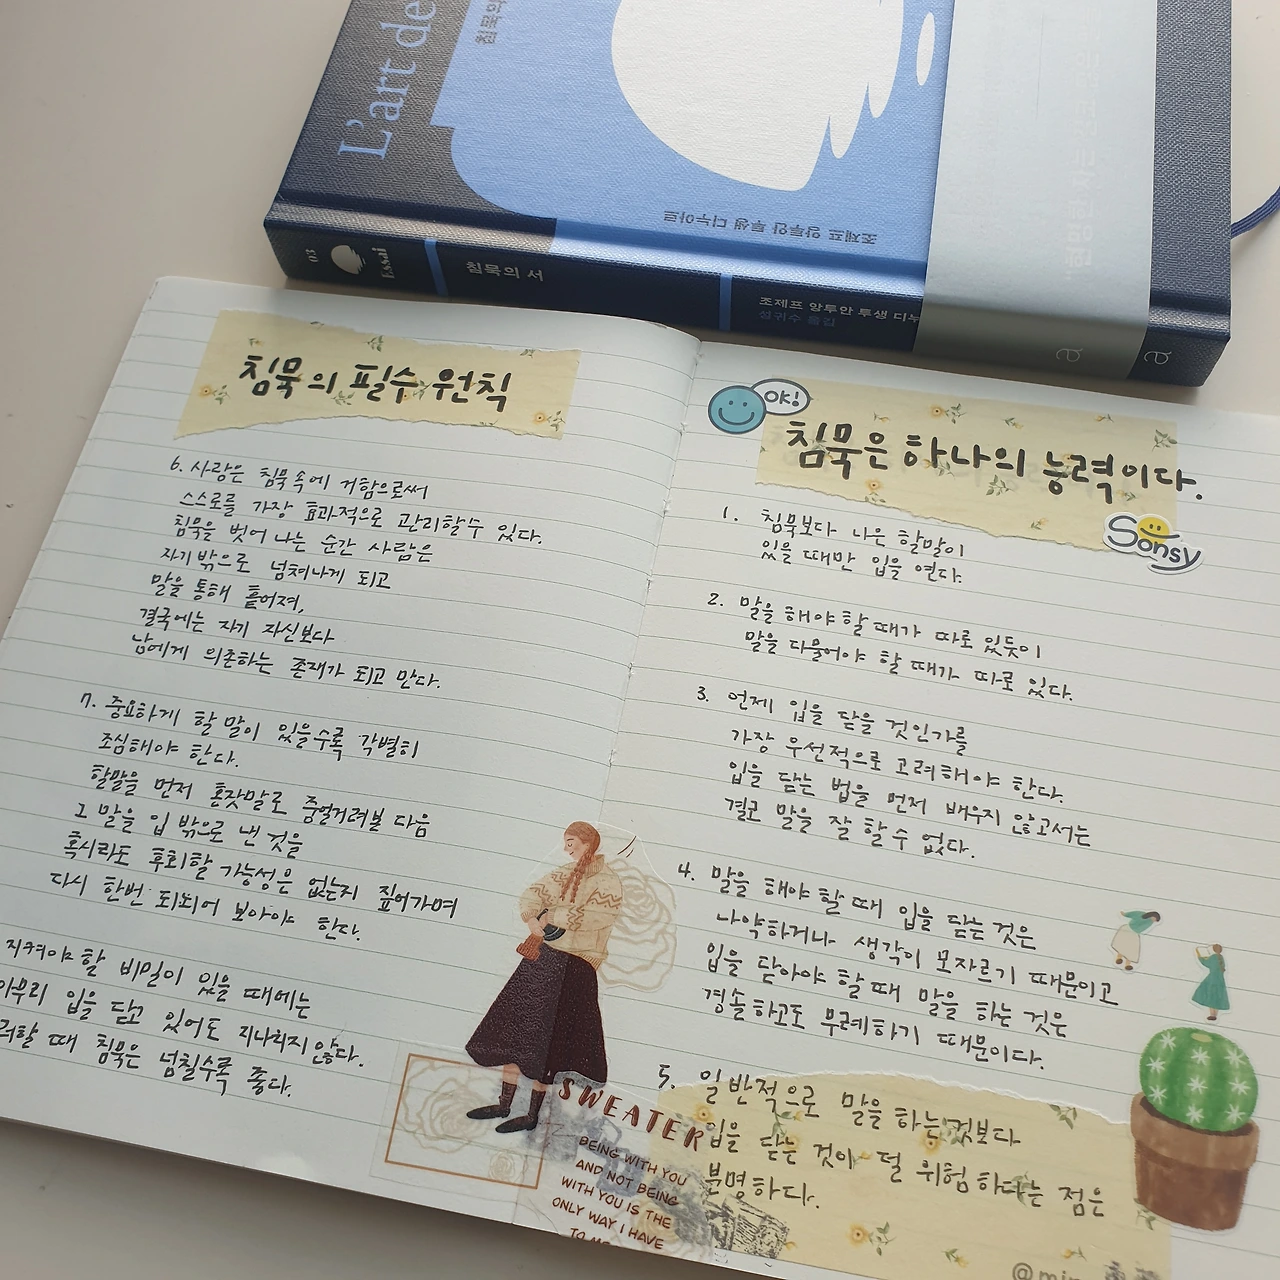 L'art de
침묵의
조제프 앙투안 투생 디누아르
03
Essai
침묵의 서
조제프 앙투안 투생 디누
성귀수 옮김
a
a
침묵의 필수 원칙
6. 사람은 침묵속에 거함으로써
스스로를 가장 효과적으로 관리할수 있다.
침묵을 벗어 나는 순간 사람은
자기밖으로 넘쳐나게 되고
말을 통해 흩어져,
결국에는 자기 자신보다
남에게 의존하는 존재가 되고 만다.
7. 중요하게 할 말이 있을수록 각별히
조심해야 한다.
할말을 먼저 혼잣말로 중얼거려본 다음
그 말을 입 밖으로 낸 것을
혹시라도 후회할 가능성은 없는지 짚어가며
다시 한번 되뇌어 보아야 한다.
지켜야 할 비밀이 있을 때에는
아무리 입을 닫고 있어도 지나치지 않다.
때 침묵은 넘칠수록 좋다.
OK!
침묵은 하나의 능력이다.
Sonsy
1. 침묵보다 나은 할말이
있을 때만 입을 연다.
2. 말을 해야 할 때가 따로 있듯이
말을 다물어야 할 때가 따로 있다.
3. 언제 입을 닫을 것인가를
가장 우선적으로 고려해야 한다.
입을 닫는 법을 먼저 배우지 않고서는
결코 말을 잘 할 수 없다.
4. 말을 해야 할 때 입을 닫는 것은
나약하거나 생각이 모자르기 때문이고
입을 닫아야 할 때 말을 하는 것은
경솔하고도 무례하기 때문이다.
5. 일반적으로 말을 하는 것보다
입을 닫는 것이 덜 위험 하다는 점은
분명하다.
SWEATER
BEING WITH YOU
AND NOT BEING
WITH YOU IS THE
ONLY WAY I HAVE